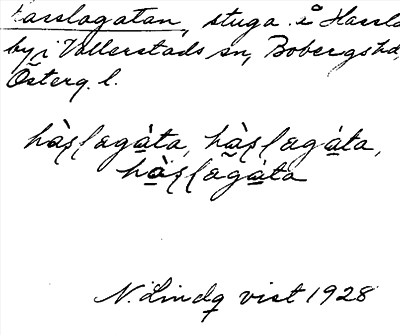 Hasslagatan, stuga i Hassla
by i Vallerstads sn, Bobergs hd,
Österg. l.
hàṣlagàta, hàṣlagàta,
hàṣlagàta
N. Lindq vist 1928